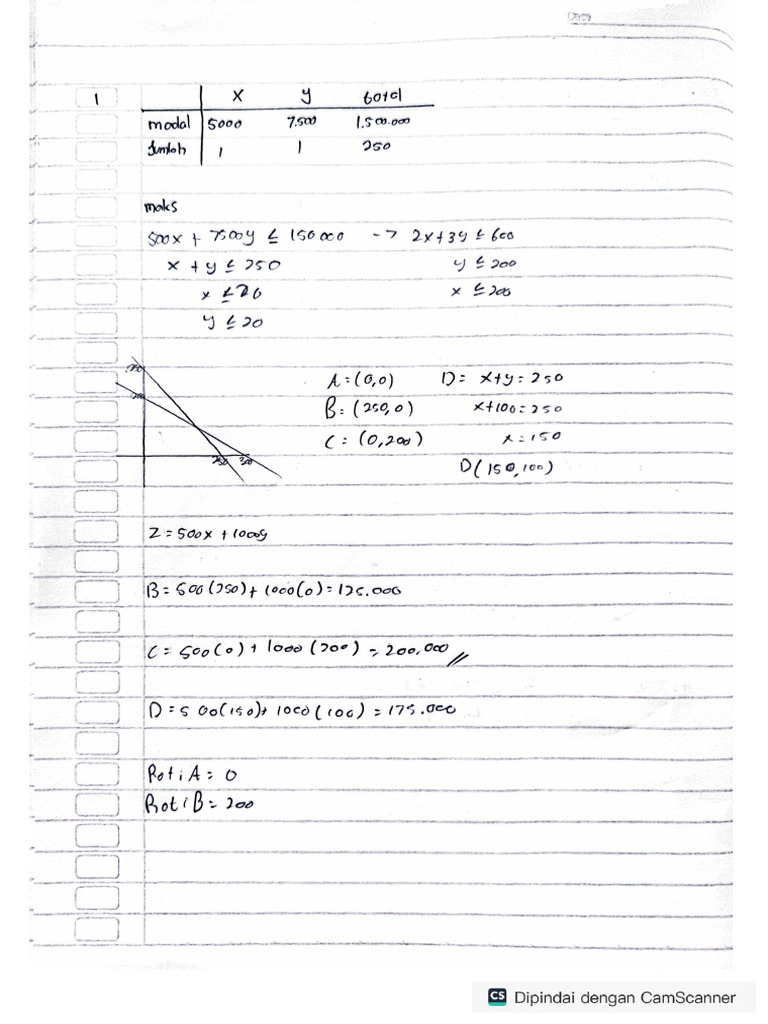 Date
1
x y total
modal 5000 7.500 1.500.000
Jumlah 1 1 250
maks
500x + 7500y ≤ 150000 -> 2x+3y ≤ 600
x + y ≤ 250 y ≤ 200
x ≤ 20 x ≤ 200
y ≤ 20
250
200
250 300
A = (0,0) D = x+y = 250
B = (250,0) x+100 = 250
C = (0,200) x = 150
D(150,100)
Z = 500x + 1000y
B = 500(250) + 1000(0) = 125.000
C = 500(0) + 1000(200) = 200,000
D = 500(150) + 1000(100) = 175.000
Roti A = 0
Roti B = 200
CS Dipindai dengan CamScanner